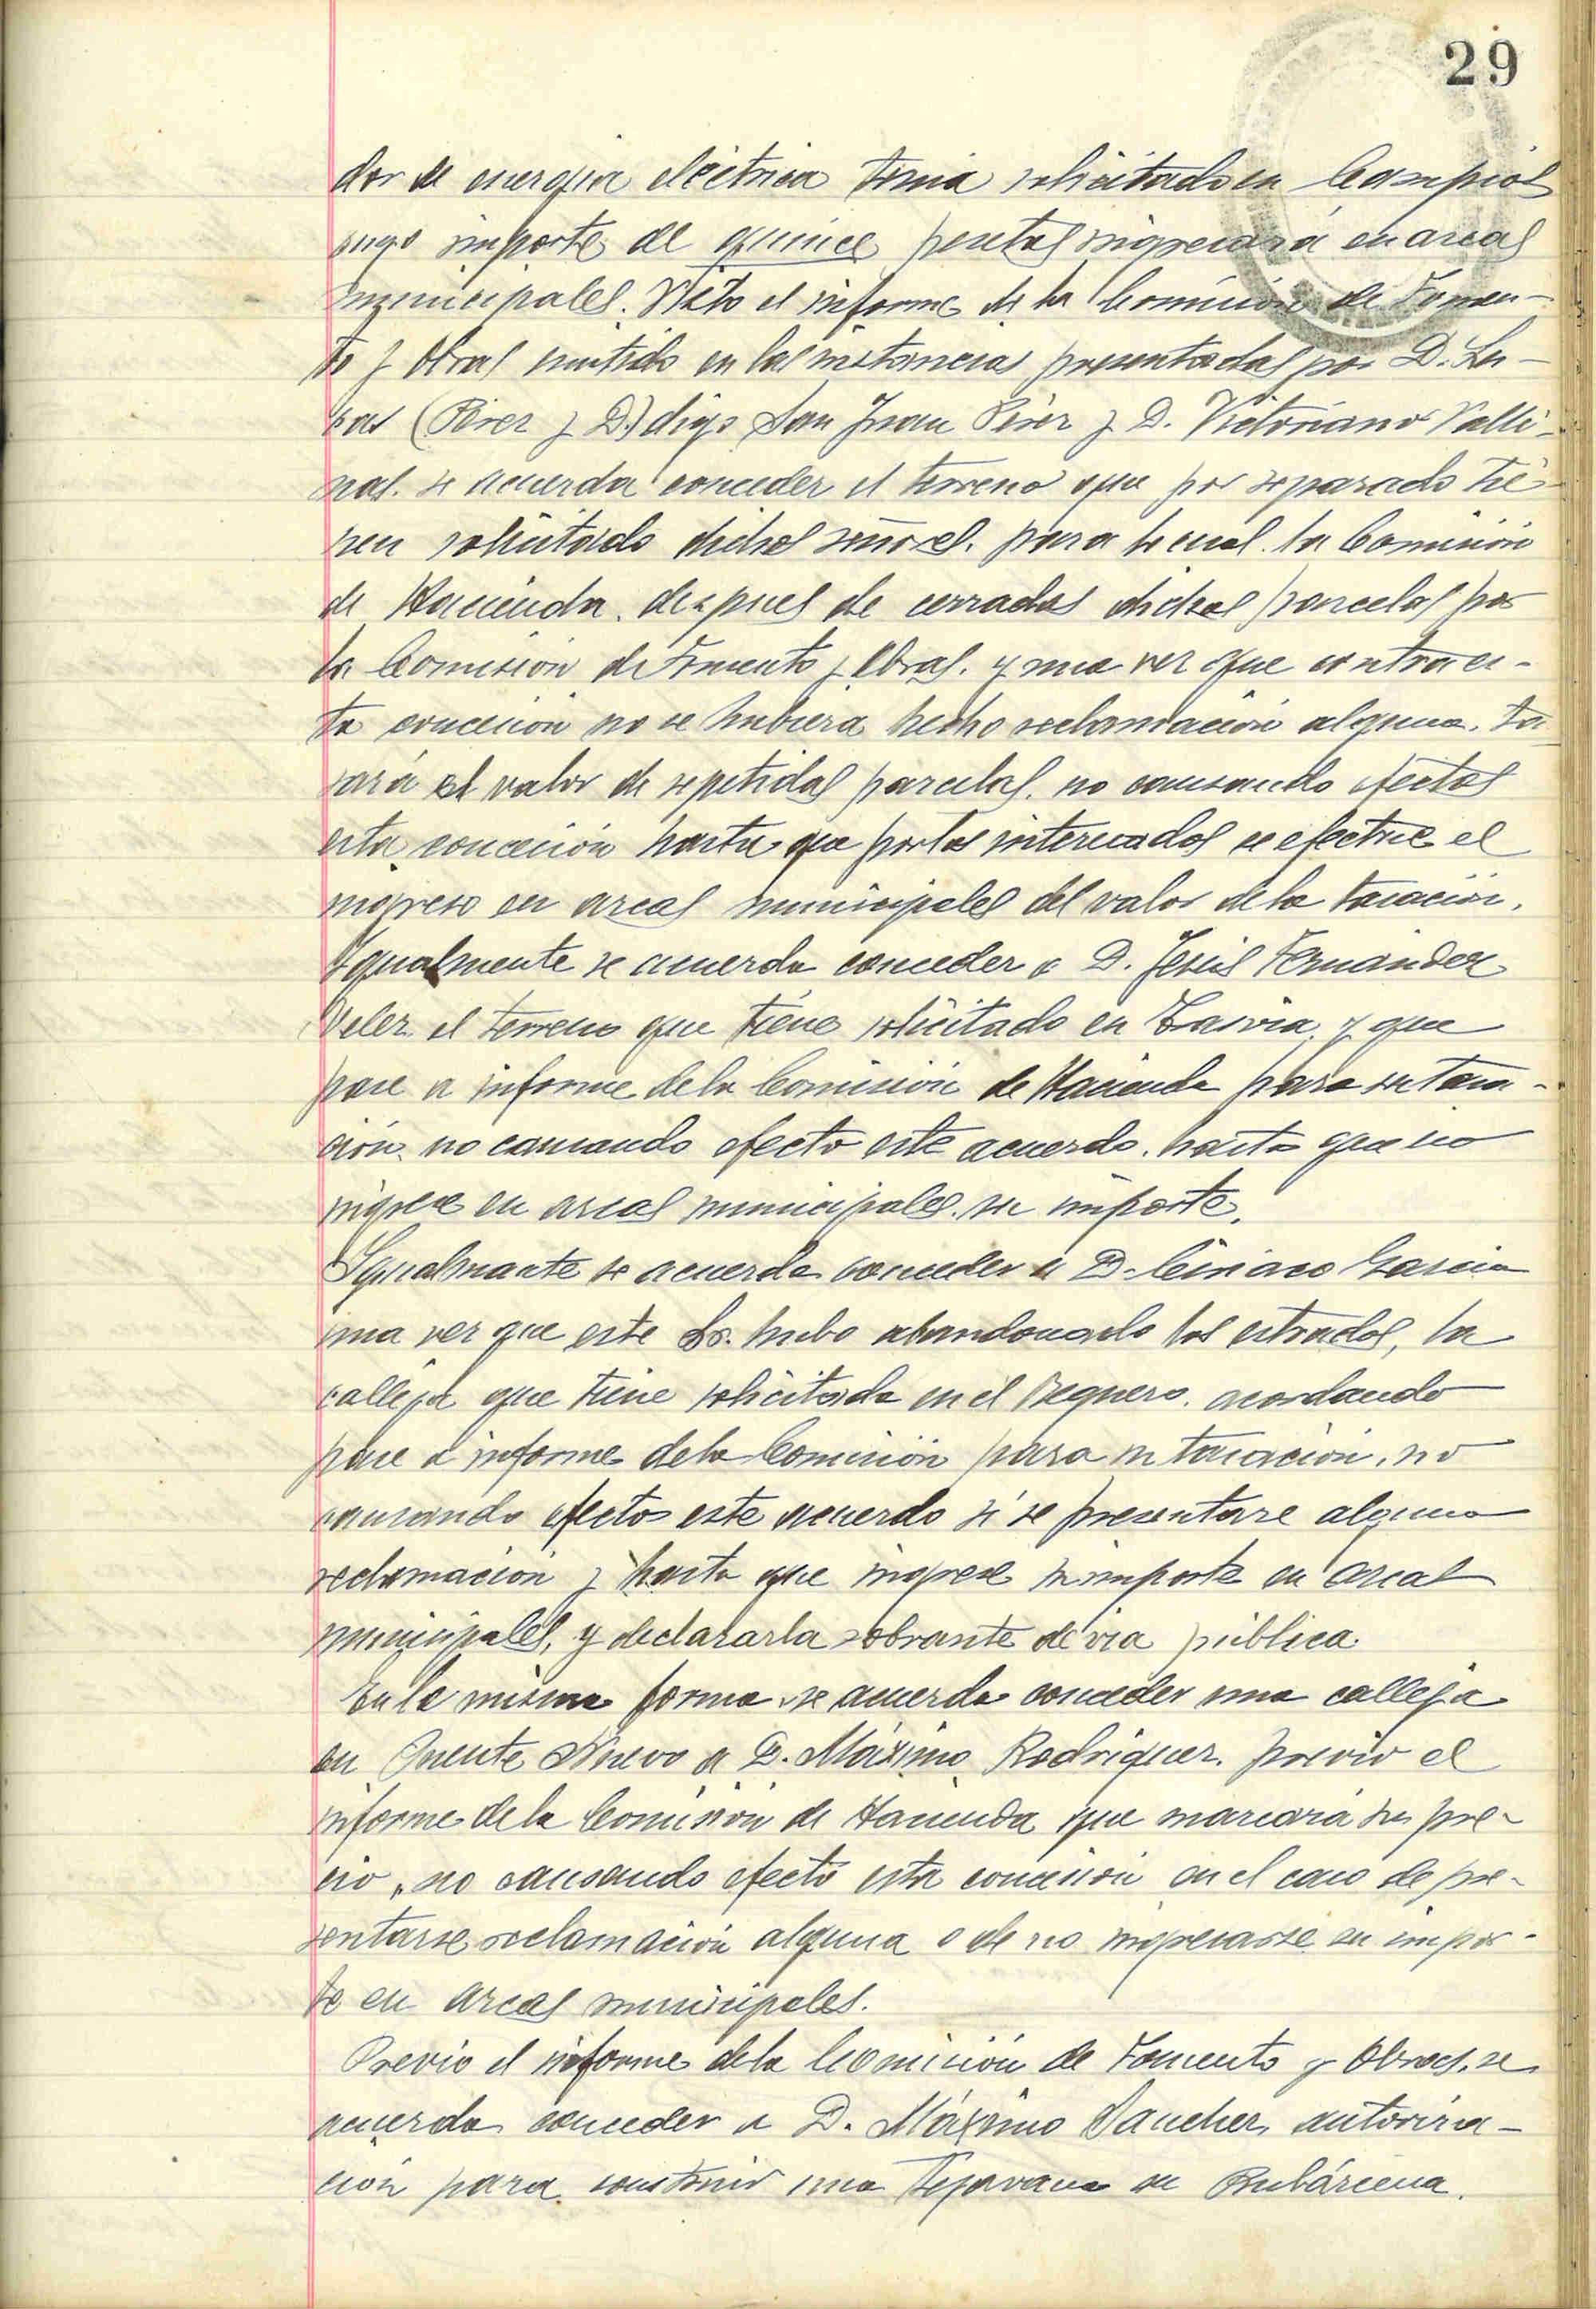 29
dor de energia eléctrica tenia solicitado en Campios
cuyo importe de quince pesetas ingresará en arcas
municipales. Visto el informe de la Comisión de Fomen-
to y Obras emitido en las instancias presentadas por D. Lu-
cas (Pérez y D.) digo San Juan Pérez y D. Victoriano Valli-
nas. se acuerda conceder el terreno que por separado tie-
nen solicitado dichos señores. para lo cual. la Comisión
de Hacienda. despues de cerradas dichas parcelas por
la Comisión de Fomento y Obras. y una vez que contra es-
ta concesión no se hubiera hecho reclamación alguna. ta-
sará el valor de repetidas parcelas. no causando efectos
esta concesión hasta que por los interesados se efectue el
ingreso en arcas municipales del valor de la tasación.
Igualmente se acuerda conceder a D. Jesús Fernández
Velez el terreno que tiene solicitado en Tasvia, y que
pase a informe de la Comisión de Hacienda para su tasa-
ción. no causando efecto este acuerdo. hasta que no
ingrese en arcas municipales. su importe.
Igualmante se acuerda conceder a D. Ciriaco Garcia
una vez que este Sr. hubo abandonado los estrados, la
calleja que tiene solicitada en el Reguero. acordando
pase a informe de la Comisión para su tasación. no
causando efectos este acuerdo si se presentare alguna
reclamación y hasta que ingrese su importe en arcas
municipales, y declararla sobrante de via pública.
En la misma forma se acuerda conceder una calleja
en Puente Nuevo a D. Máximo Rodriguez. previo el
informe de la Comisión de Hacienda que marcará su pre-
cio, no causando efecto esta concesión en el caso de pre-
sentarse reclamación alguna o de no ingresarse su impor-
te en arcas municipales.
Previo el informe de la Comisión de Fomento y Obras. se
acuerda conceder a D. Máximo Sanchez autoriza-
ción para construir una tejavana en Rubárcena.